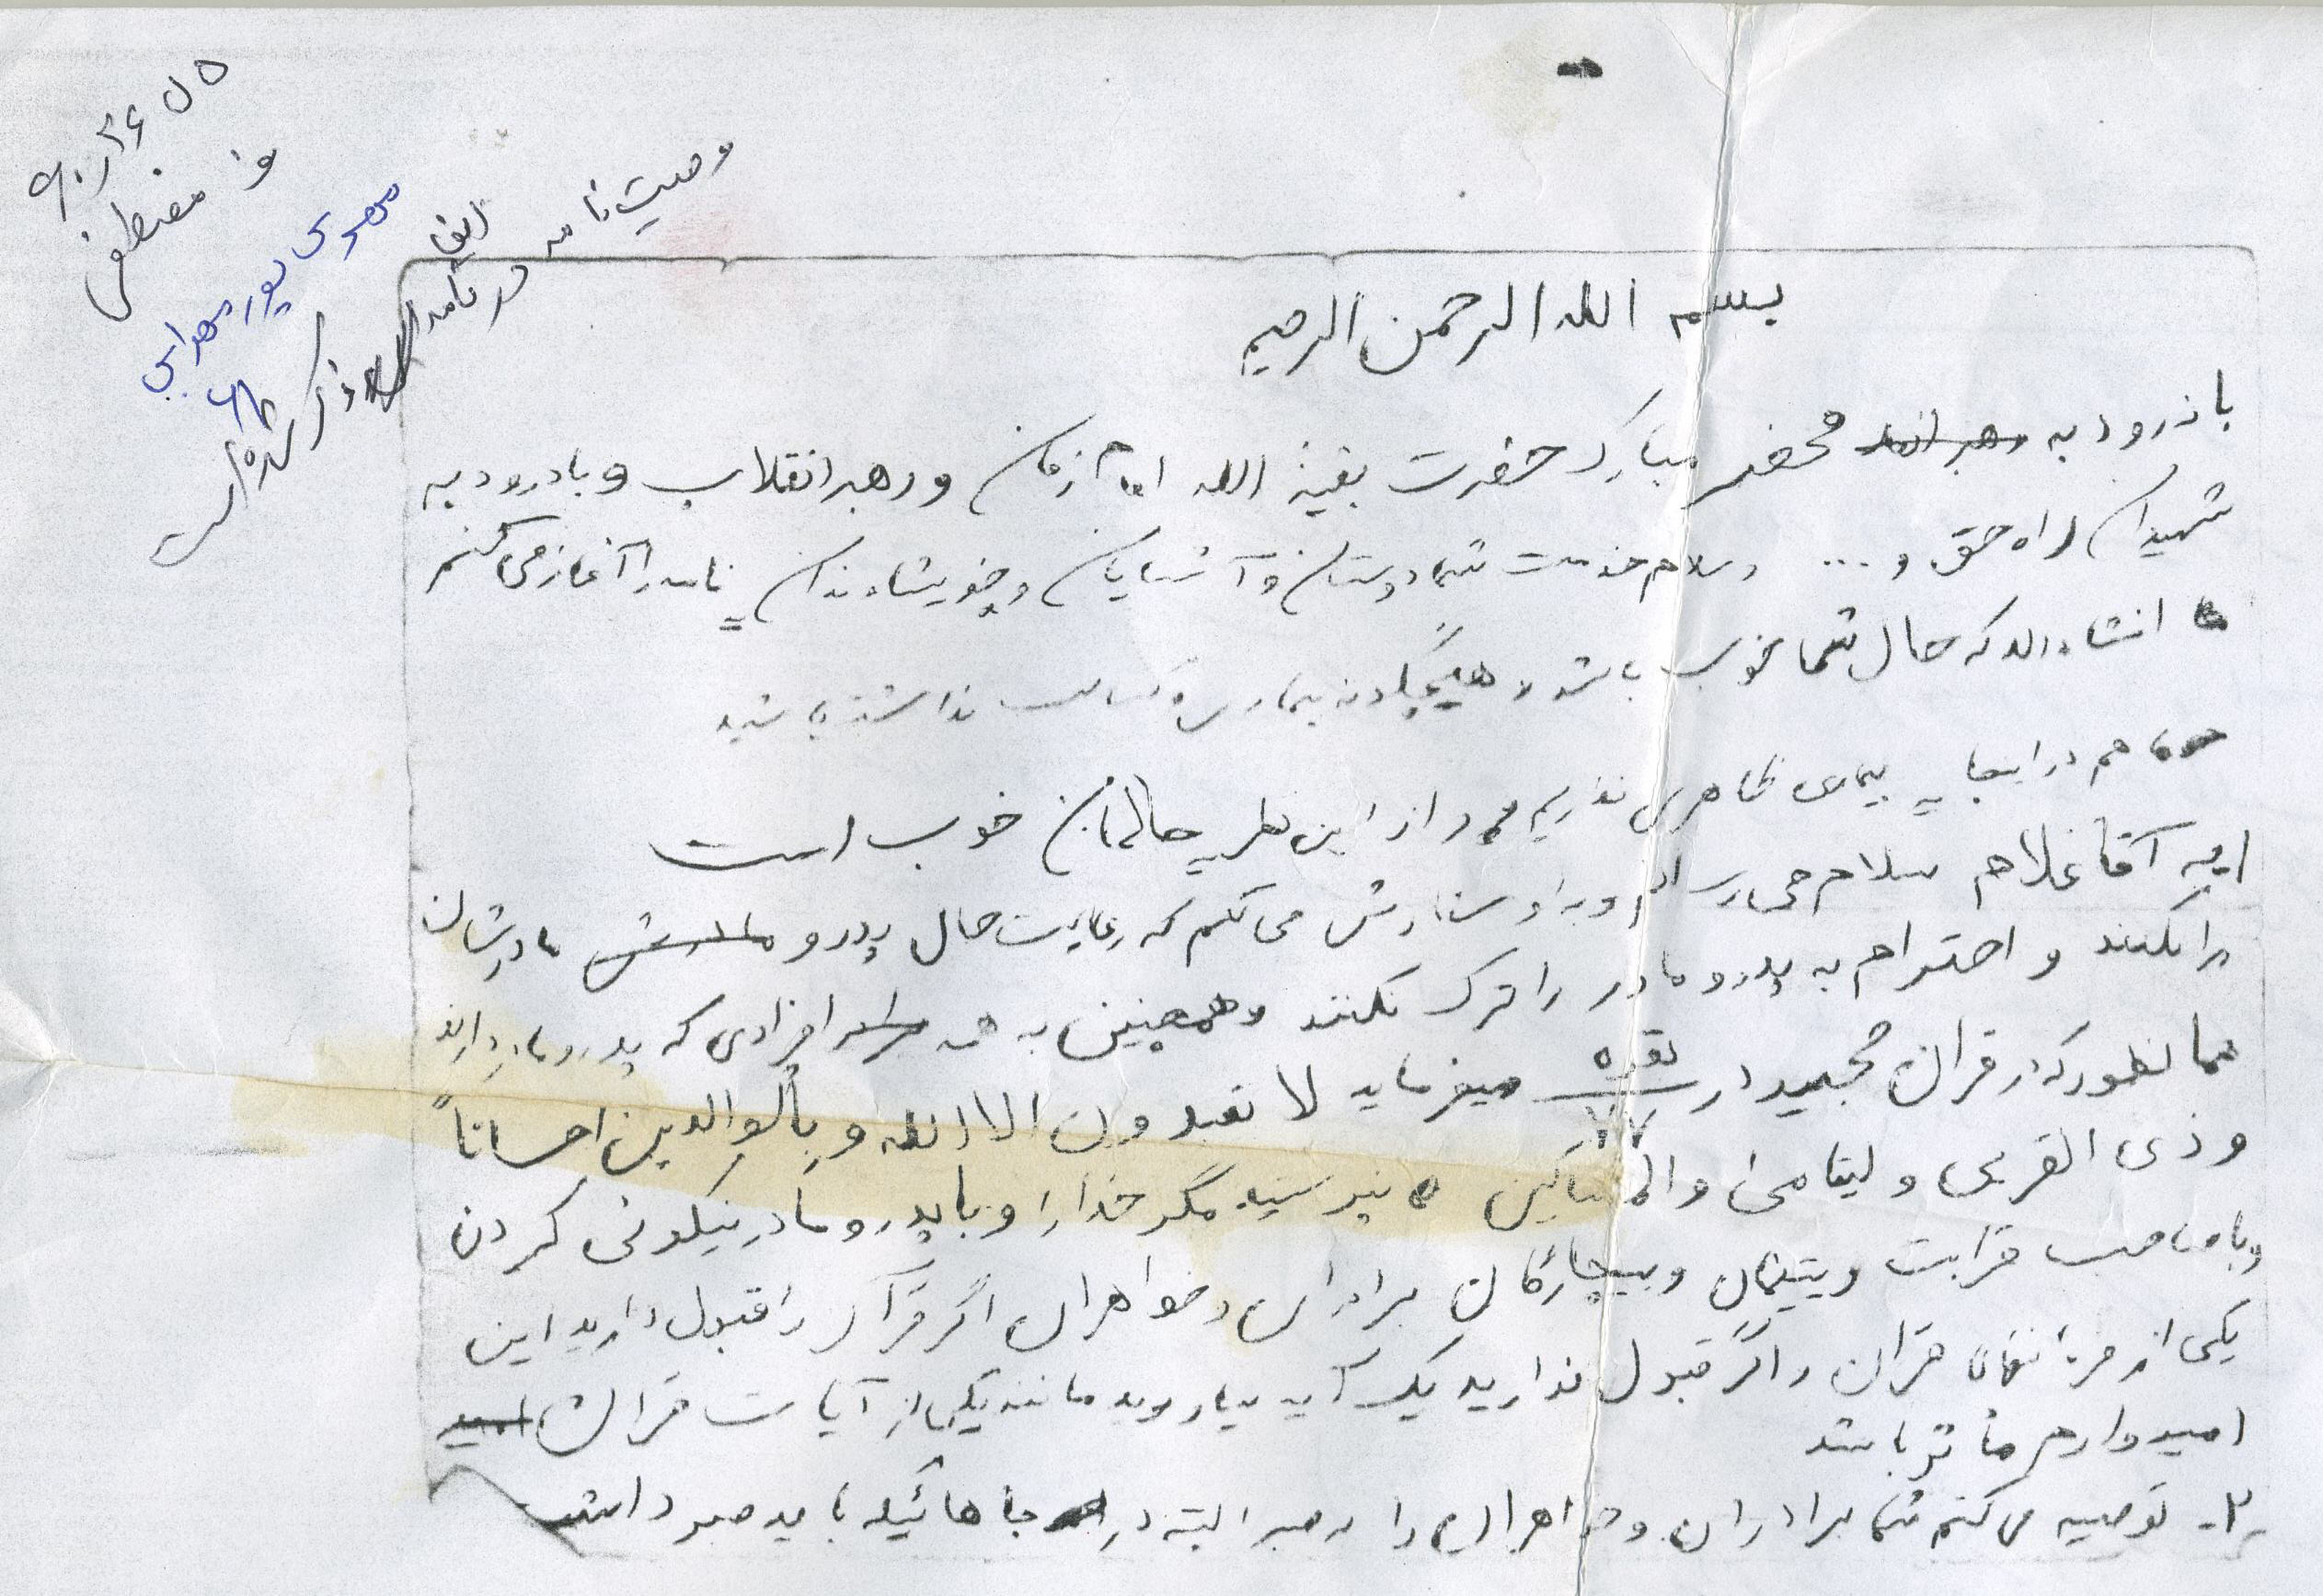 وصیت نامه در نامه
ایفا
ذکر شده است
مهدی پور مهرابی
بسم الله الرحمن الرحیم
با درود به رهبر محضر مبارک حضرت بقیة الله امام زمان و رهبر انقلاب و با درود به
شهیدان راه حق و ... و سلام خدمت شما دوستان و آشنایان و خویشاوندان نامه را آغاز می کنم
انشاءالله که حال شما خوب باشد و هیچگونه بیماری و کسالت نداشته باشید
ما هم در اینجا بیماری ظاهری نداریم و از این نظر حالمان خوب است
به آقا غلام سلام می رسانم و به او سفارش می کنم که رعایت حال پدر و مادرش مادرشان
را بکنند و احترام به پدر و مادر را ترک نکنند و همچنین به همه افرادی که پدر و مادر دارند
همانطور که در قران مجید در بقره میفرماید لا تعبدون الا الله و بالوالدین احساناً
و ذی القربی و لیتامی و المساکین نپرستید مگر خدا را و با پدر و مادر نیکوئی کردن
و با صاحب قرابت و یتیمان و بیچارگان برادران و خواهران اگر قرآن را قبول دارید این
یکی از قران و اگر قبول ندارید یک آیه بیاورید مانند یکی از آیات قران امید
امیدوارم باشد
۲- توصیه می کنم شما برادران و خواهران را به صبر البته در جاهائیکه باید صبر داشت